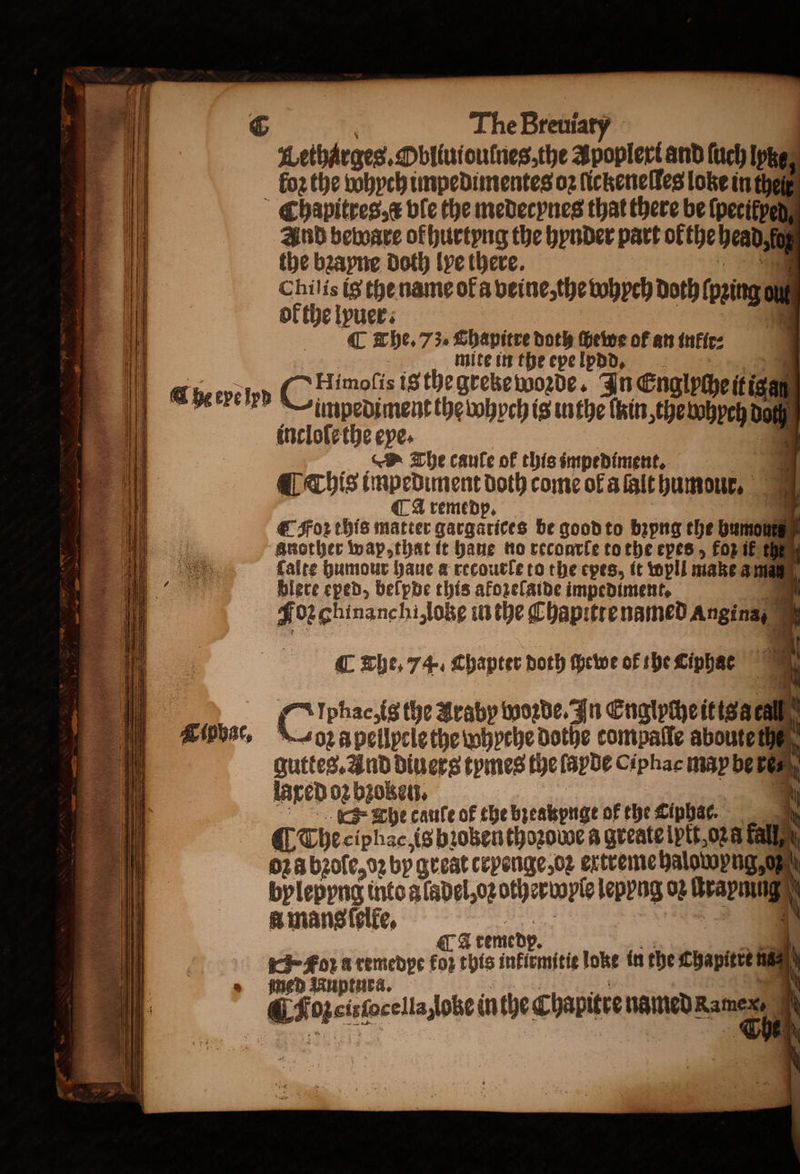 C The Breuiary
Letharges. Obliuiousnes, the Apoplexi and such lyke,
for the whych impedimentes or sickenesses loke in their
Chapitres, & vse the medecynes that there be specifyed,
And beware of hurtyng the hynder part of the head, for
the brayne doth lye there.
Chilis is the name of a veine, the whych doth spring out
of the lyuer.
¶ The. 73. Chapitre doth shewe of an infir=
mite in the eye lydd.
¶ The eye lyd
CHimosis is the greke worde. In Englyshe it is an
impediment the whych is in the skin, the whych doth
inclose the eye.
☞ The cause of this impediment.
¶ This impediment doth come of a salt humour.
¶ A remedy.
¶ For this matter gargarices be good to bryng the humours
another way, that it haue no recourse to the eyes, for if the
salte humour haue a recourse to the eyes, it wyll make a man
blere eyed, besyde this aforesaide impediment.
For chinanchi, loke in the Chapitre named Angina,
¶ The. 74. Chapter doth shewe of the Ciphac
Ciphac,
CIphac, is the Araby worde. In Englyshe it is a call
or a pellycle the whyche dothe compasse aboute the
guttes. And diuers tymes the sayde Ciphac may be re=
laxed or broken.
☞ The cause of the breakynge of the Ciphac.
¶ The ciphac, is broken thorowe a greate lyft, or a fall,
or a brose, or by great cryenge, or extreme halowyng, or
by leppyng into a sadel, or otherwyse leppyng or straynung
a mans selfe.
¶ A remedy.
☞ For a remedye for this infirmitie loke in the Chapitre na=
med Ruptura.
¶ For cirsocella, loke in the Chapitre named Ramex.
The